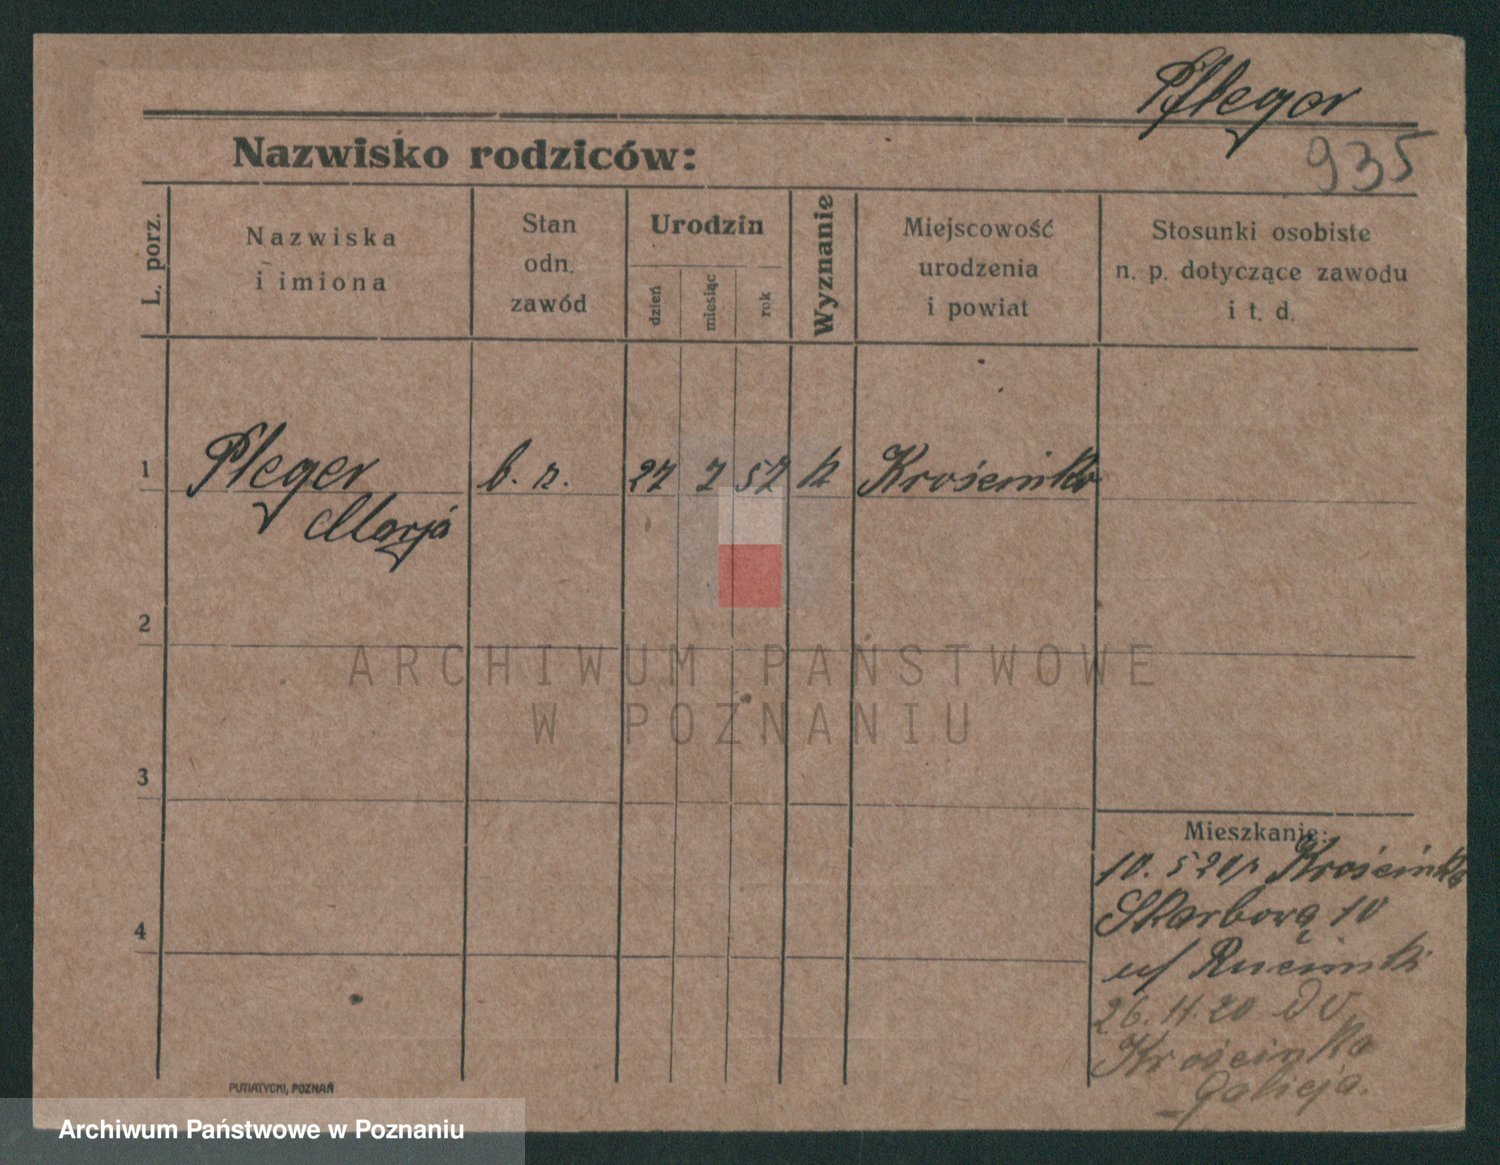 Pfleger
935
Nazwisko rodziców:
L. porz.
Nazwiska
i imiona
Stan
odn.
zawód
Urodzin
dzień
miesiąc
rok
Wyznanie
Miejscowość
urodzenia
i powiat
Stosunki osobiste
n. p. dotyczące zawodu
i t. d.
1 Pfleger b. z. 27 7 52 k Krościenko
Marja
2
ARCHIWUM PAŃSTWOWE
W POZNANIU
3
Mieszkanie:
10. 5 20 z Krościenka
4 Skarbowa 10
u/
26. 11. 20 do
Krościenka
Galicja.
PUTIATYCKI, POZNAŃ
Archiwum Państwowe w Poznaniu